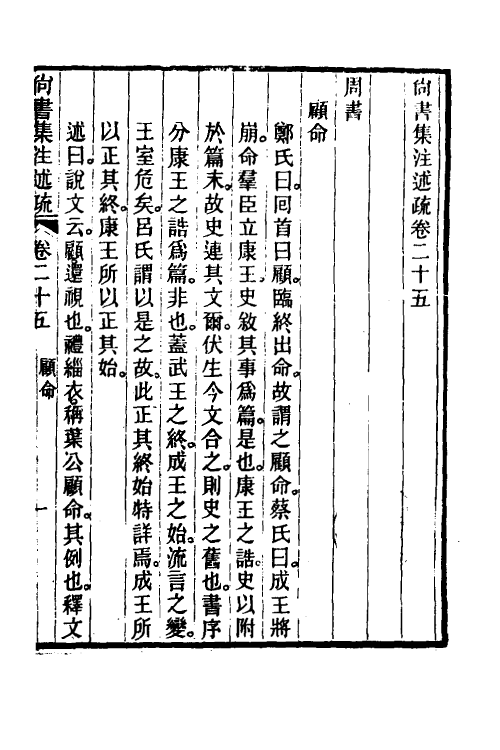 尙書集注述疏卷二十五
周書
顧命
鄭氏曰。回首曰顧。臨終出命。故謂之顧命。蔡氏曰。成王將
崩。命羣臣立康王。史敘其事爲篇。是也。康王之誥。史以附
於篇末。故史連其文爾。伏生今文合之。則史之舊也。書序
分康王之誥爲篇。非也。蓋武王之終。成王之始。流言之變。
王室危矣。呂氏謂以是之故。此正其終始特詳焉。成王所
以正其終。康王所以正其始。
述曰。說文云。顧還視也。禮緇衣稱葉公顧命。其例也。釋文
尙書集注述疏 卷二十五 顧命 一